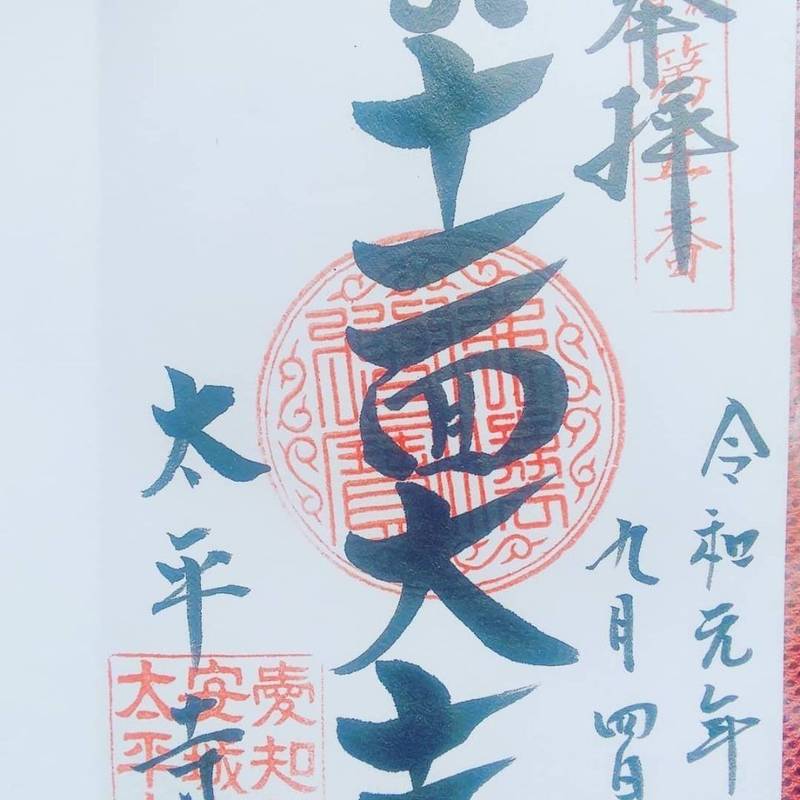 奉拝
第
番
令和元年
九月四日
十一面大士
佛法僧寶
太平寺
愛知
安城
太平